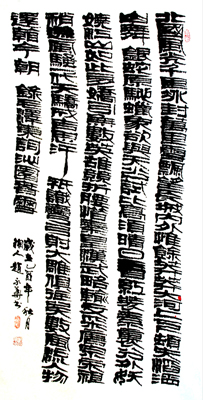 北國風光千里冰封萬里雪飄望長城内外惟餘莽莽大河上下頓失滔滔
山舞銀蛇原馳蠟象欲與天公試比高須晴日看紅裝素裹分外妖
嬈江山如此多嬌引無數英雄競折腰惜秦皇漢武略輸文采唐宗宋
祖稍遜風騷一代天驕成吉思汗只識彎弓射大雕俱往矣數風流人物
還看今朝 錄毛澤東詞沁園春雪
歲在乙酉年秋月